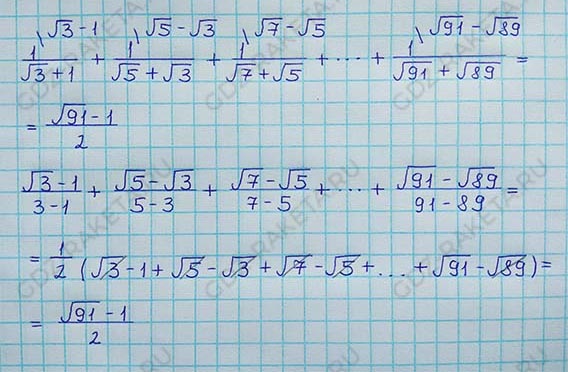 \√3 - 1 \√5 - √3 \√7 - √5 \√91 - √89
1/(√3 + 1) + 1/(√5 + √3) + 1/(√7 + √5) + ... + 1/(√91 + √89) =
= (√91 - 1)/2
(√3 - 1)/(3 - 1) + (√5 - √3)/(5 - 3) + (√7 - √5)/(7 - 5) + ... + (√91 - √89)/(91 - 89) =
= 1/2 (√3 - 1 + √5 - √3 + √7 - √5 + ... + √91 - √89) =
= (√91 - 1)/2
GDZRAKETA.RU